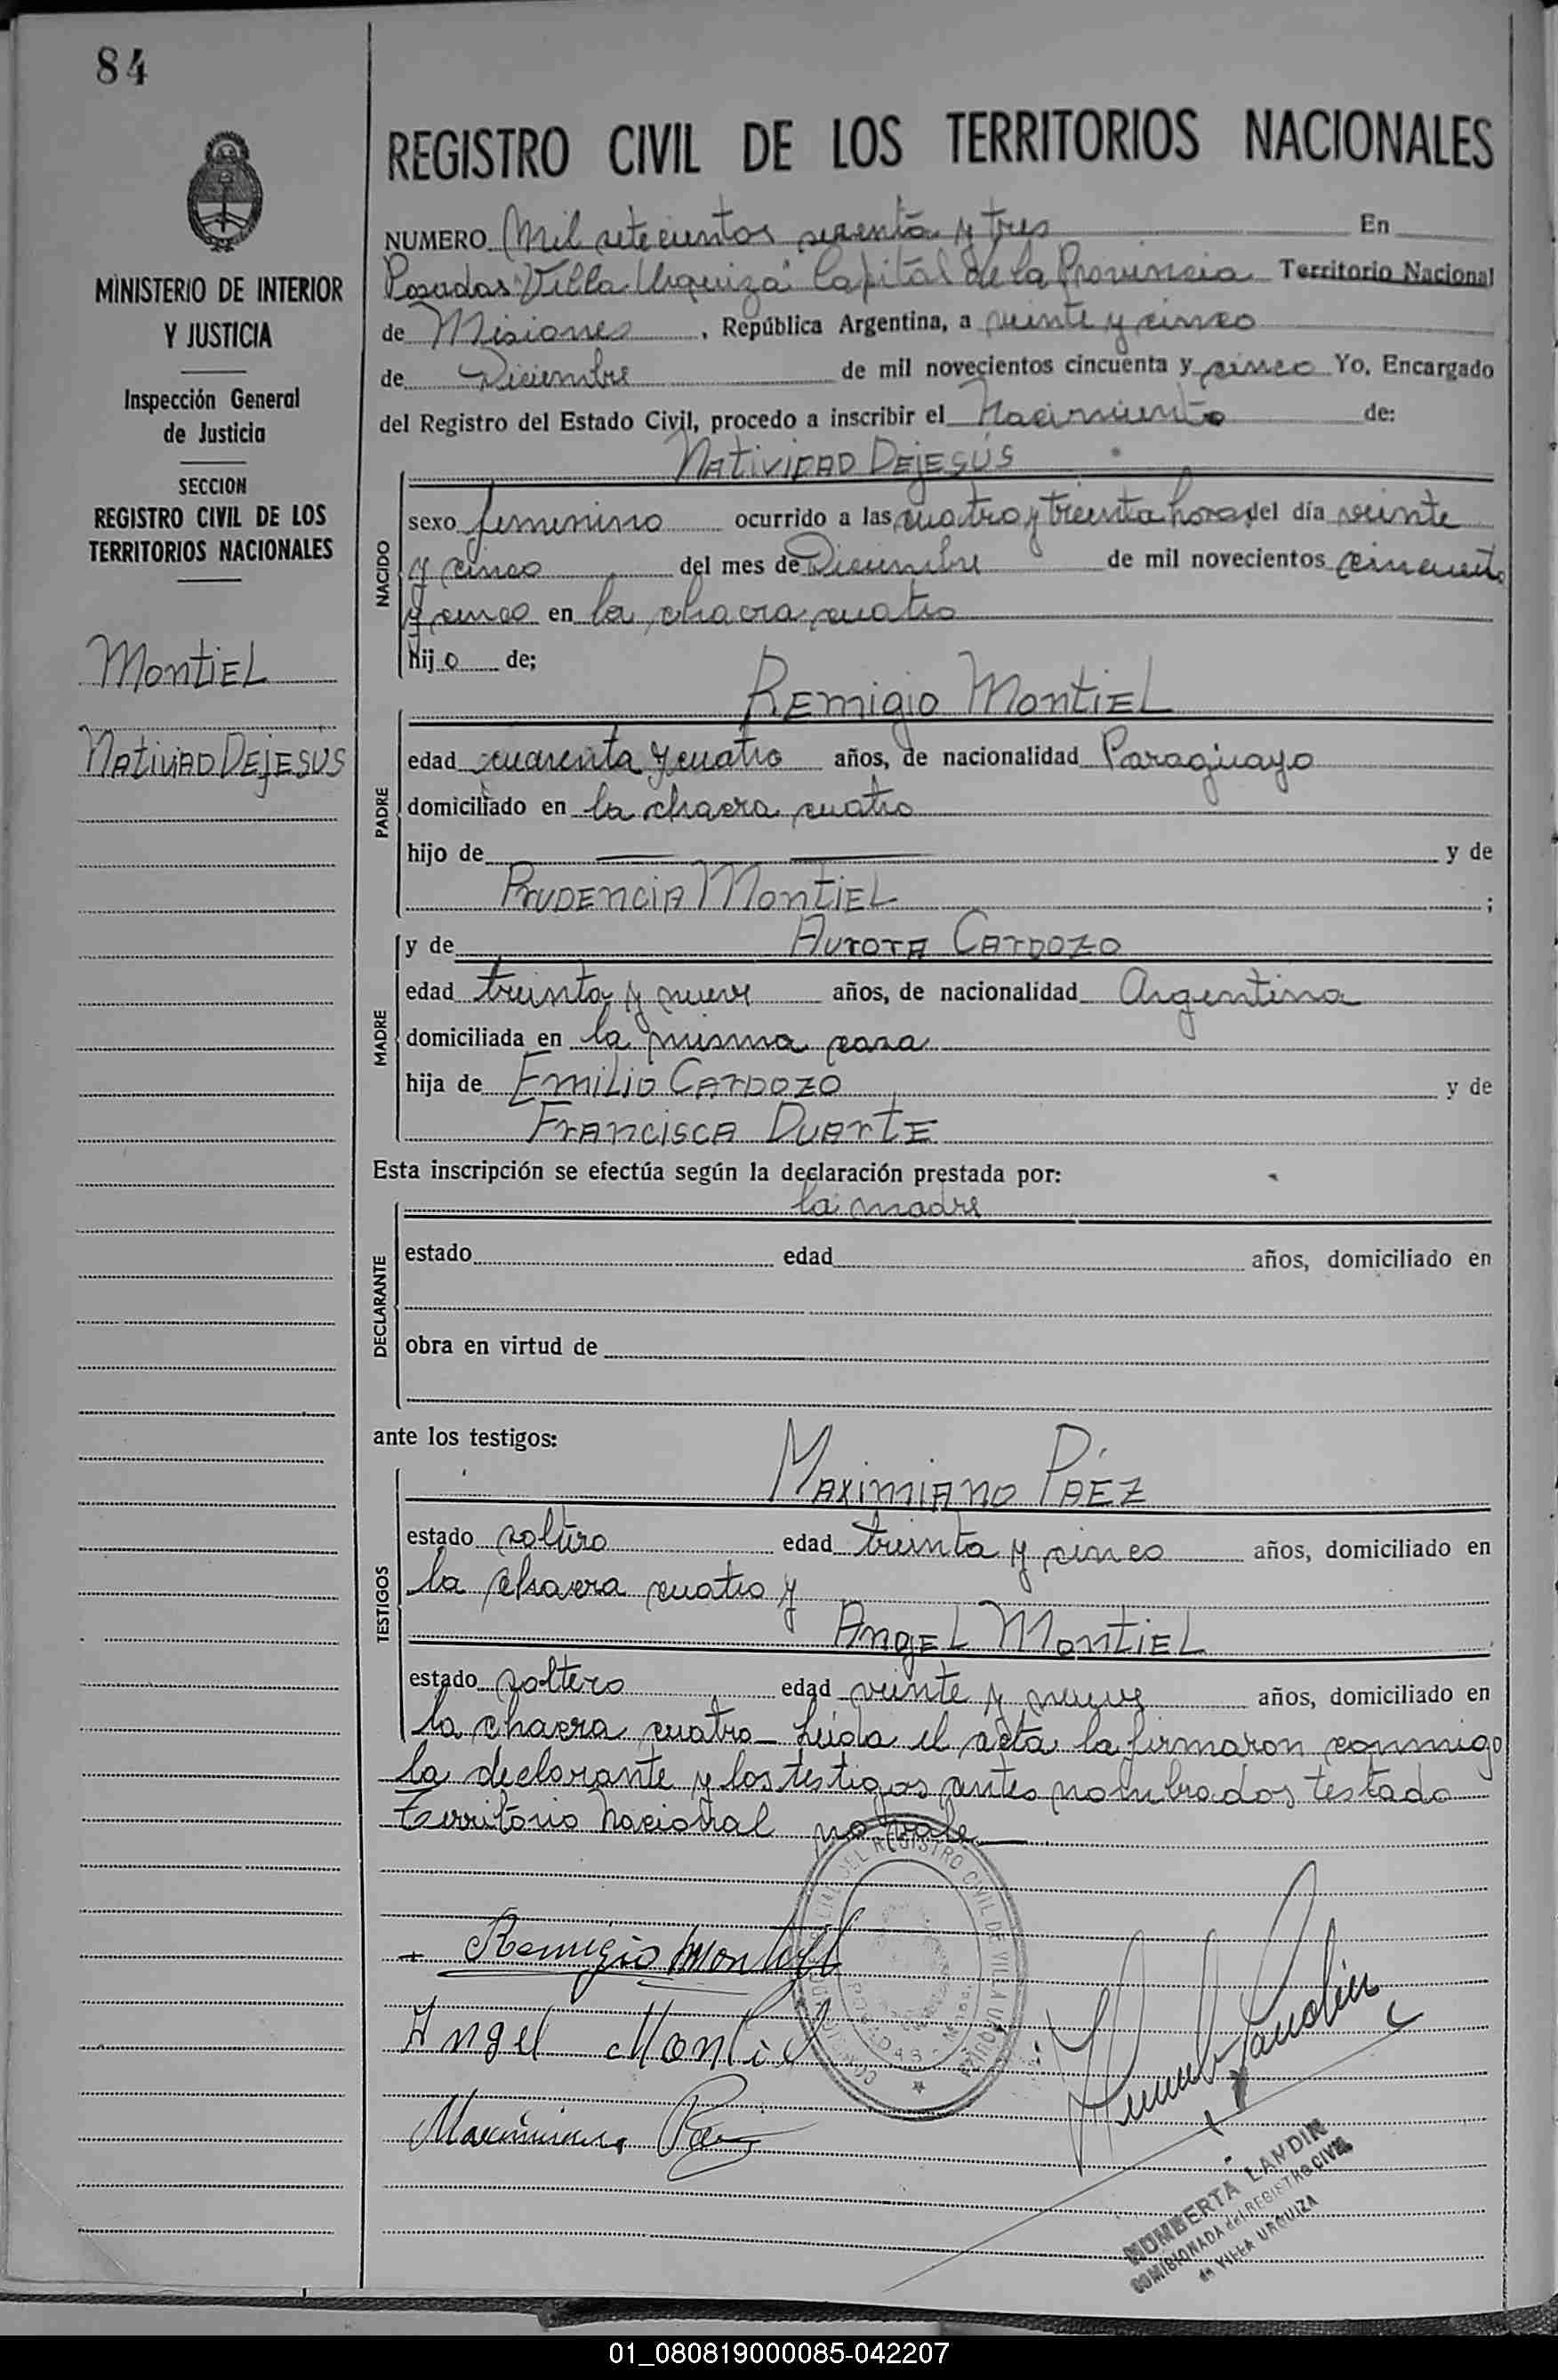 84
MINISTERIO DE INTERIOR
Y JUSTICIA
Inspección General
de Justicia
SECCION
REGISTRO CIVIL DE LOS
TERRITORIOS NACIONALES
Montiel
Natividad Dejesús
REGISTRO CIVIL DE LOS TERRITORIOS NACIONALES
NUMERO Mil setecientos sesenta y tres En
Posadas "Villa Urquiza" Capital de la Provincia Territorio Nacional
de Misiones, República Argentina, a veinte y cinco
de Diciembre de mil novecientos cincuenta y cinco Yo, Encargado
del Registro del Estado Civil, procedo a inscribir el Nacimiento de:
NACIDO
Natividad Dejesús
sexo femenino ocurrido a las cuatro y treinta horas del día veinte
y cinco del mes de Diciembre de mil novecientos cincuenta
y cinco en la chacra cuatro
hijo de;
PADRE
Remigio Montiel
edad cuarenta y cuatro años, de nacionalidad Paraguayo
domiciliado en la chacra cuatro
hijo de — — y de
Prudencia Montiel ;
MADRE
y de Aurora Cardozo
edad treinta y nueve años, de nacionalidad Argentina
domiciliada en la misma casa
hija de Emilio Cardozo y de
Francisca Duarte
Esta inscripción se efectúa según la declaración prestada por:
DECLARANTE
la madre
estado edad años, domiciliado en
obra en virtud de
ante los testigos:
TESTIGOS
Maximiano Páez
estado soltero edad treinta y cinco años, domiciliado en
la chacra cuatro y
Angel Montiel
estado soltero edad veinte y nueve años, domiciliado en
la chacra cuatro - Leida el acta la firmaron conmigo
la declarante y los testigos antes nombrados testado
Territorio Nacional no vale—
Remigio Montiel
Angel Montiel
Maximiano Páez
DEL REGISTRO CIVIL DE VILLA URQUIZA
POSADAS
HUMBERTA LANDIN
COMISIONADA del REGISTRO CIVIL
de VILLA URQUIZA
01_080819000085-042207